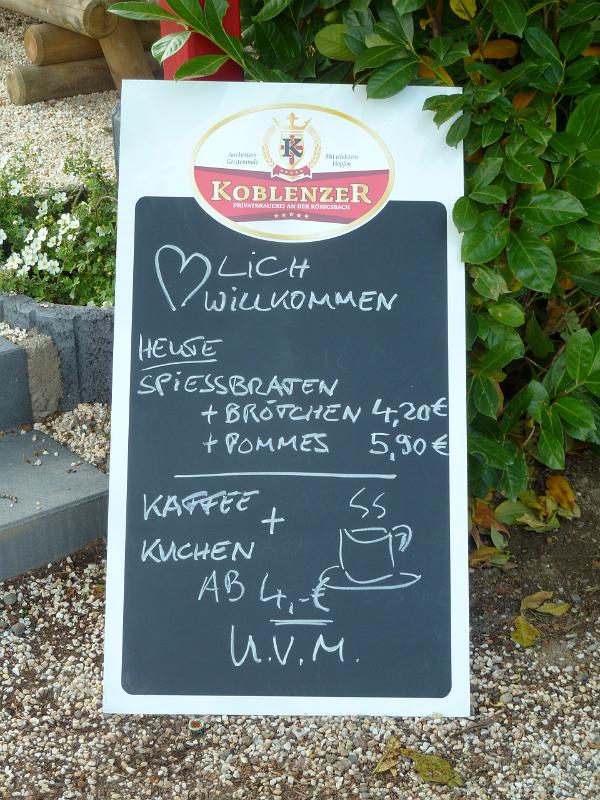 Aus bestem Mit edelstem
Gerstenmalz Hopfen
K
KOBLENZER
PRIVATBRAUEREI AN DER KÖNIGSBACH
LICH
WILLKOMMEN
HEUTE
SPIESSBRATEN
+ BRÖTCHEN 4,20€
+ POMMES 5,90€
KAFFEE +
KUCHEN
AB 4,-€
U.V.M.